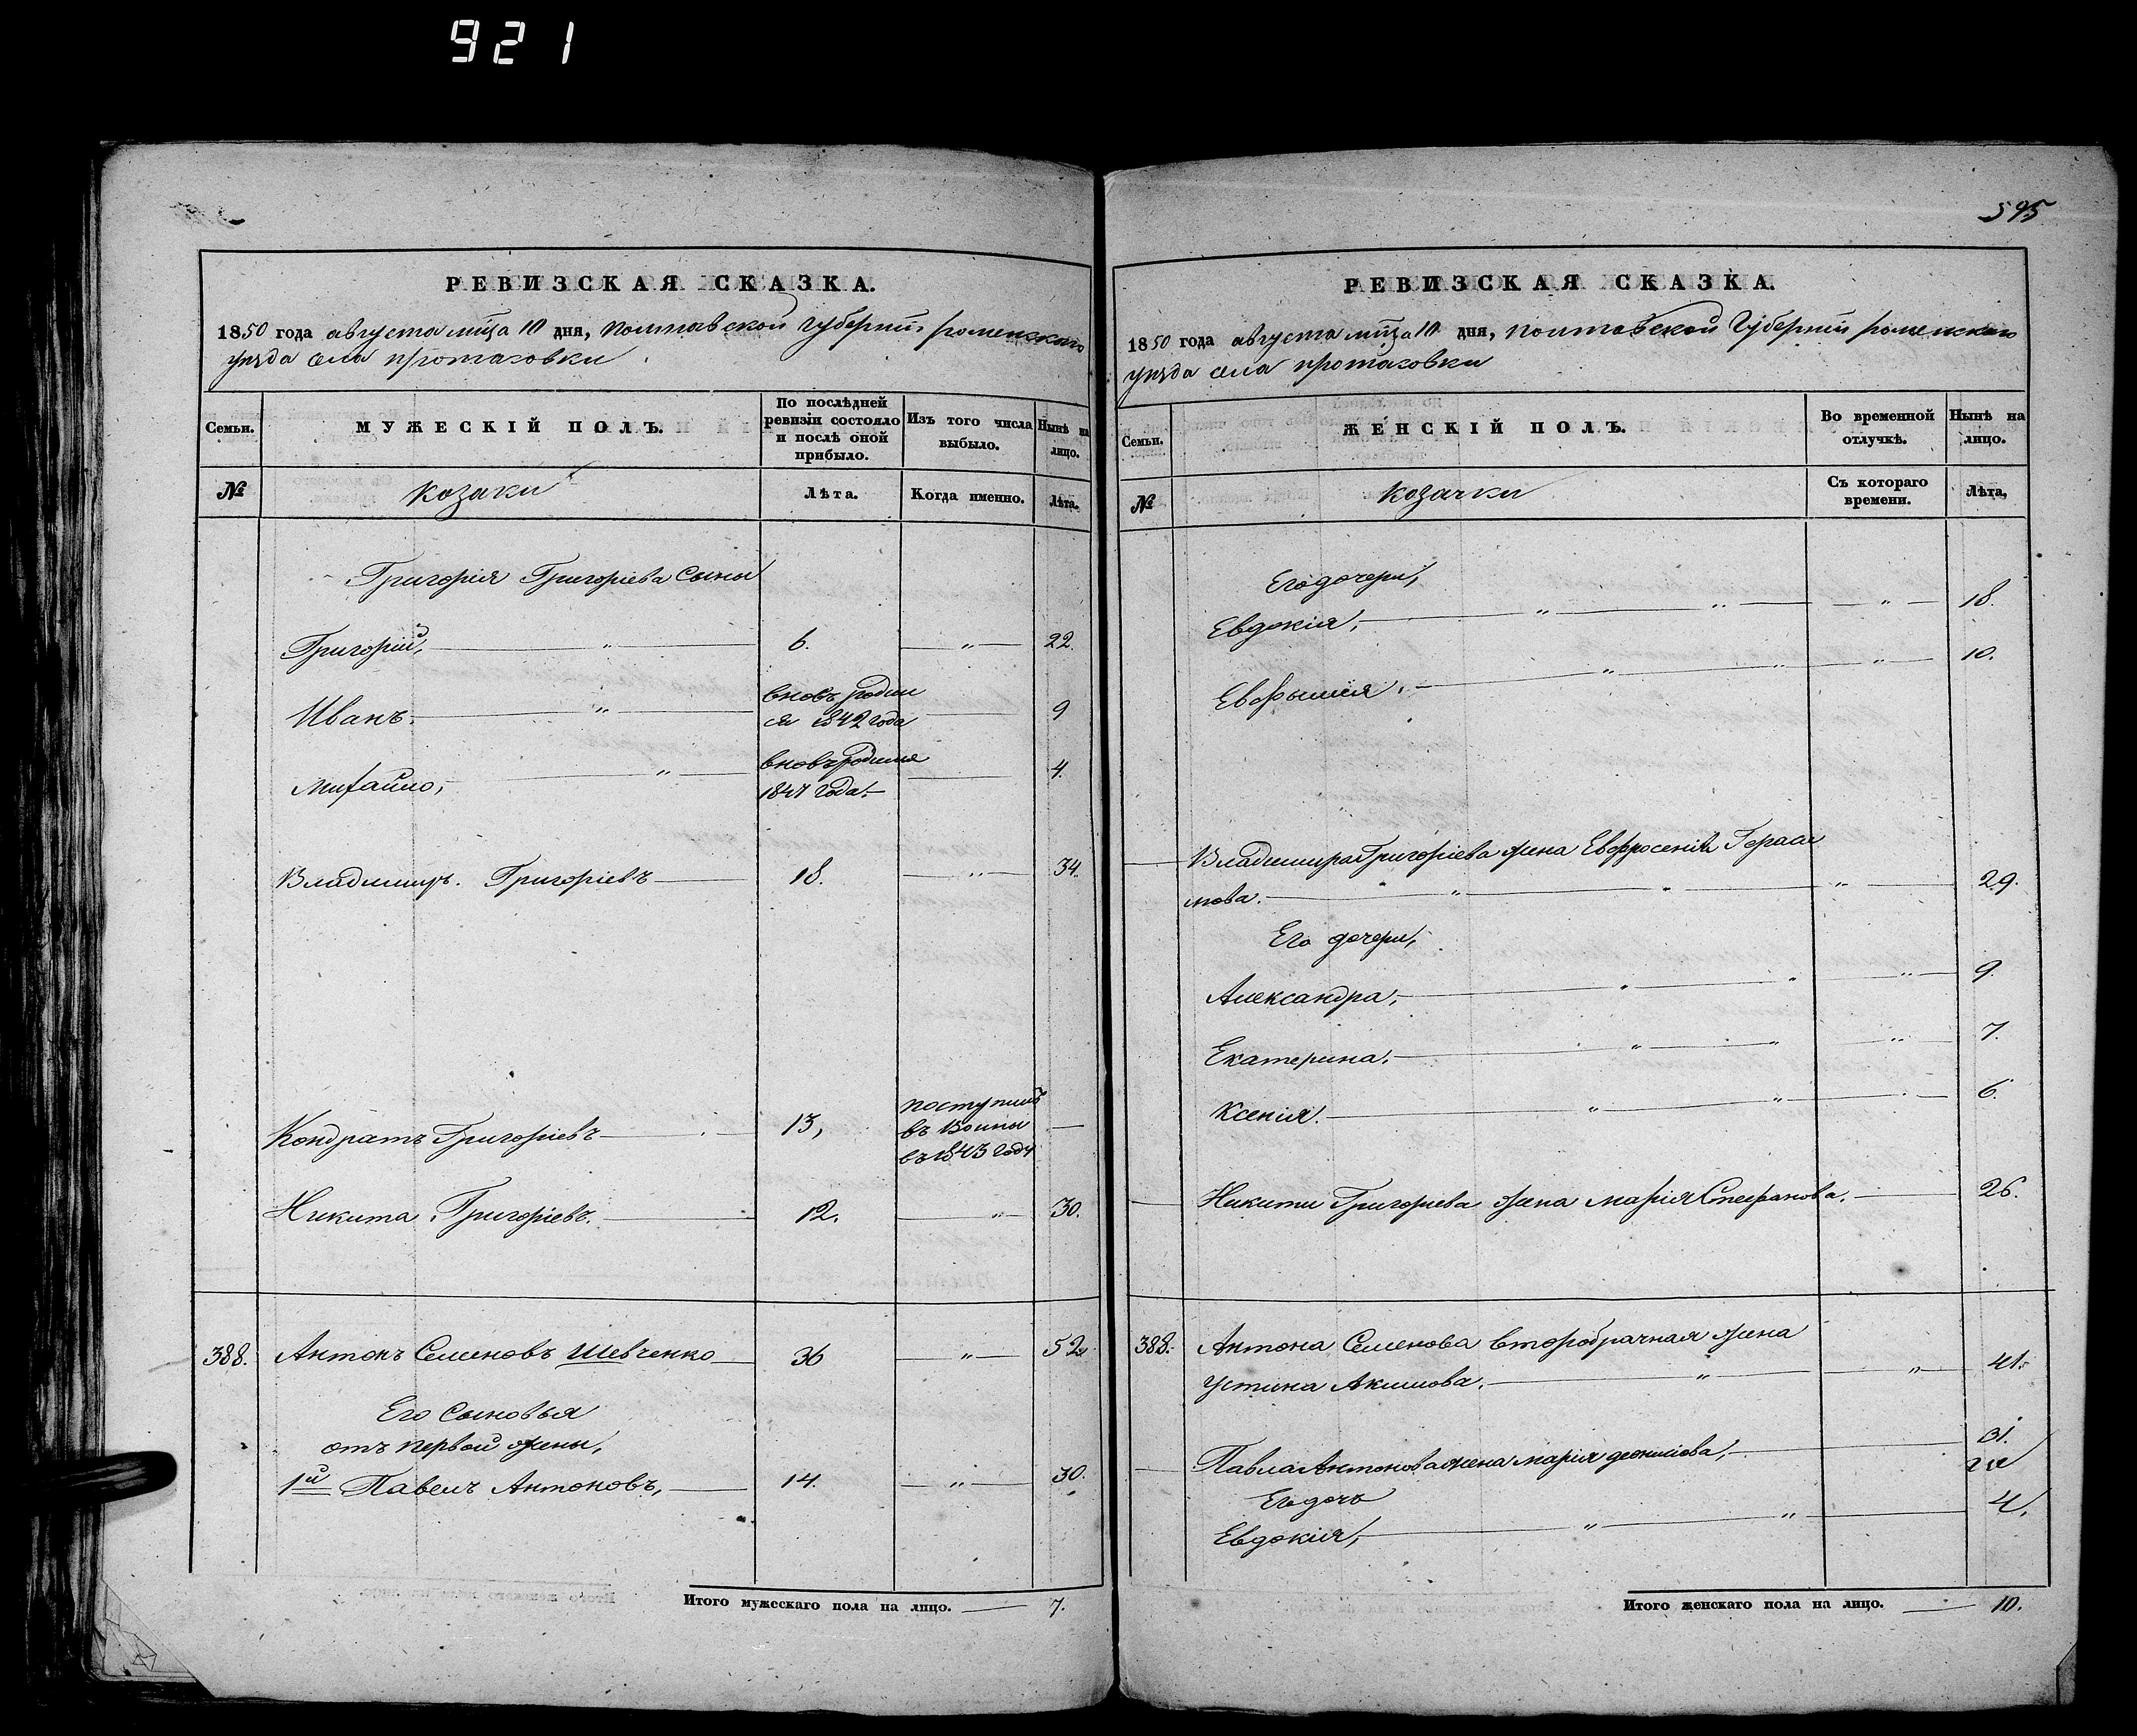 921
РЕВИЗСКАЯ СКАЗКА.
1850 года августа мѣца 10 дня, Полтавской Губерніи, роменскаго
уѣзда села протасовки
Семьи.
МУЖЕСКІЙ ПОЛЪ.
По послѣдней
ревизіи состояло
и послѣ оной
прибыло.
Изъ того числа
выбыло.
Нынѣ на
лицо.
№
козаки
Лѣта.
Когда именно.
Лѣта.
Григорія Григоріева Сыны
Григорій, 6. 22.
Иванъ. вновь родил
ся 1842 года 9
Михайло, вновь родился 4.
1847 года.
Владимиръ. Григоріевъ 18. 34.
Кондратъ Григоріевъ 13, поступилъ
въ Воины
въ 1843 году
Никита Григоріевъ. 12. 30.
388. Антонъ Семеновъ Шевченко 36 52
Его Сыновья
отъ первой жены,
1й Павелъ Антоновъ, 14. 30.
Итого мужескаго пола на лицо. 7.
595
РЕВИЗСКАЯ СКАЗКА.
1850 года августа мѣца 10 дня, полтавской Губерніи роменскаго
уѣзда села протасовки
Семьи.
ЖЕНСКІЙ ПОЛЪ.
Во временной
отлучкѣ.
Нынѣ на
лицо.
№
козачки
Съ котораго
времени.
Лѣта,
Его дочери,
Евдокія, 18.
10.
Владимира Григоріева жена Евфросенія Гераси
мова. 29.
Его дочери,
Александра, 9.
Екатерина. 7.
Ксенія. 6.
Никиты Григорьева жена Марія Стефанова. 26.
388. Антона Семенова второбрачная жена
Устина Акимова. 41.
Павла Антонова жена Марія 31.
Его дочь
Евдокія, 4.
Итого женскаго пола на лицо. 10.